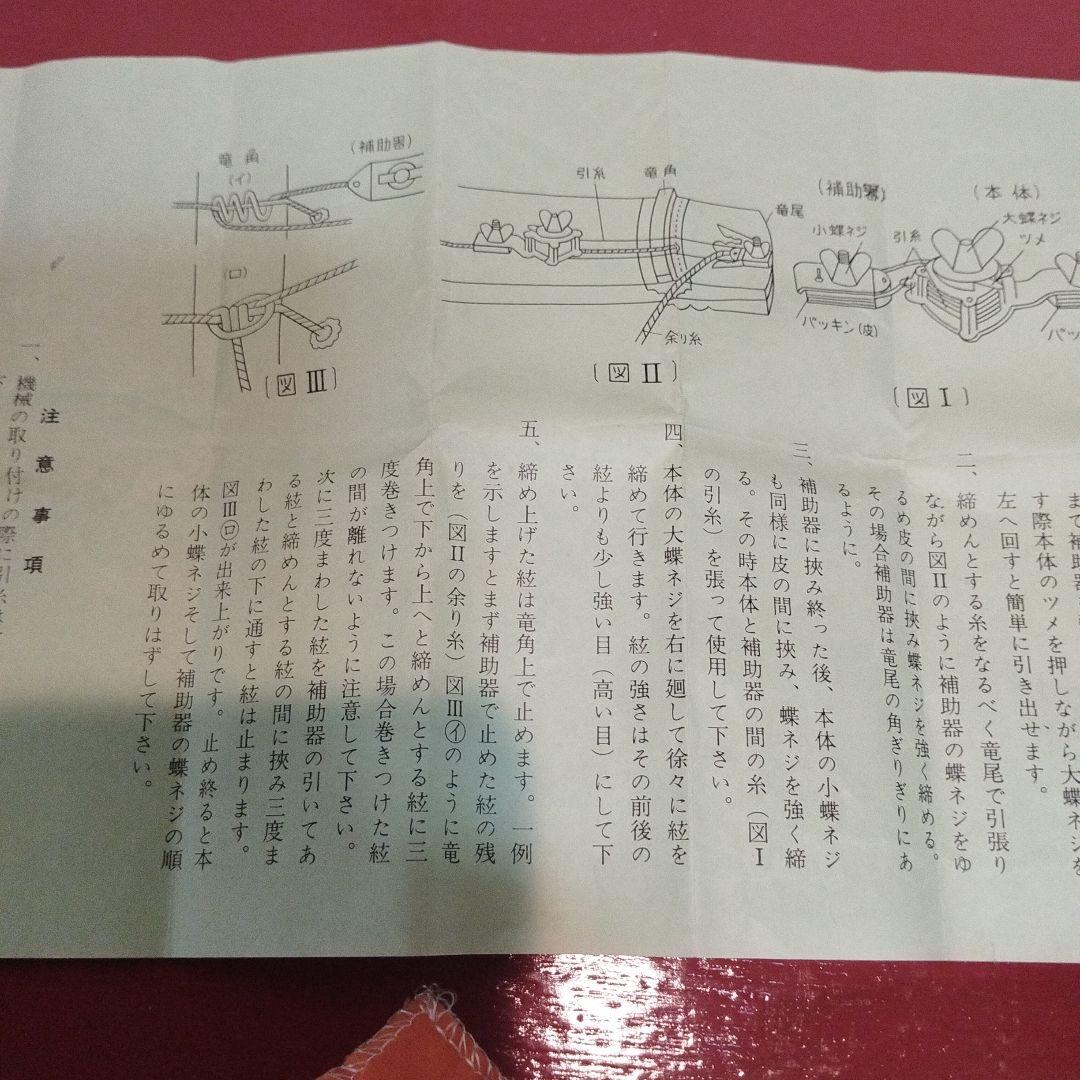 (本体)
大蝶ネジ
ツメ
(補助器)
小蝶ネジ
引糸
パッキン(皮)
〔図Ⅰ〕
竜角
引糸
竜尾
余り糸
〔図Ⅱ〕
(補助器)
竜角
(イ)
(ロ)
〔図Ⅲ〕
まで補助器
す際本体のツメを押しながら大蝶ネジを
左へ回すと簡単に引き出せます。
二、締めんとする糸をなるべく竜尾で引張り
ながら図Ⅱのように補助器の蝶ネジをゆ
るめ皮の間に挟み蝶ネジを強く締める。
その場合補助器は竜尾の角ぎりぎりにあ
るように。
三、補助器に挟み終った後、本体の小蝶ネジ
も同様に皮の間に挟み、蝶ネジを強く締
る。その時本体と補助器の間の糸(図Ⅰ
の引糸)を張って使用して下さい。
四、本体の大蝶ネジを右に廻して徐々に絃を
締めて行きます。絃の強さはその前後の
絃よりも少し強い目(高い目)にして下
さい。
五、締め上げた絃は竜角上で止めます。一例
を示しますとまず補助器で止めた絃の残
りを(図Ⅱの余り糸)図Ⅲ㋑のように竜
角上で下から上へと締めんとする絃に三
度巻きつけます。この場合巻きつけた絃
の間が離れないように注意して下さい。
次に三度まわした絃を補助器の引いてあ
る絃と締めんとする絃の間に挟み三度ま
わした絃の下に通すと絃は止まります。
図Ⅲ㋺が出来上がりです。止め終ると本
体の小蝶ネジそして補助器の蝶ネジの順
にゆるめて取りはずして下さい。
注意事項
一、機械の取り付けの際に引糸は